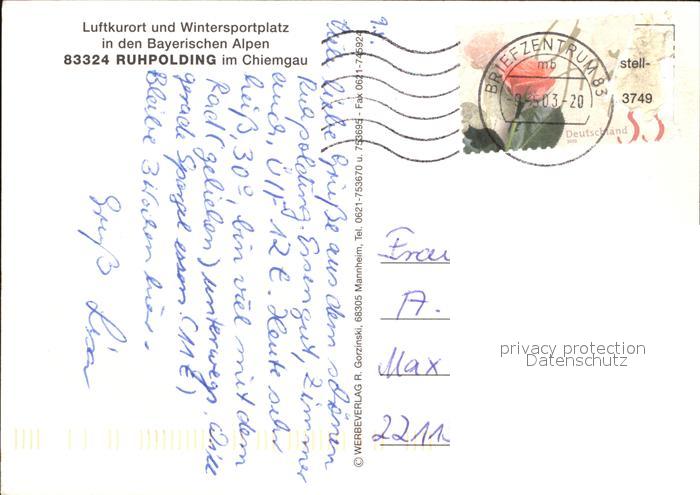 Luftkurort und Wintersportplatz
in den Bayerischen Alpen
83324 RUHPOLDING im Chiemgau
9.5.
Viele liebe Grüße aus dem schönen
Ruhpolding. Essen gut, Zimmer
auch, Ü/F 12 €. Heute sehr
heiß, 30°, bin viel mit dem
Rad (geliehen) unterwegs. Will
gerade Spargel essen. (11 €)
Bleibe 3 Wochen hier.
Gruß
© WERBEVERLAG R. Gorzinski, 68305 Mannheim, Tel. 0621-753670 u. 753695 - Fax 0621-745924
BRIEFZENTRUM 83
mb
-9.5.03-20
stell-
3749
Deutschland
55
Frau
A.
Max
2211
privacy protection
Datenschutz